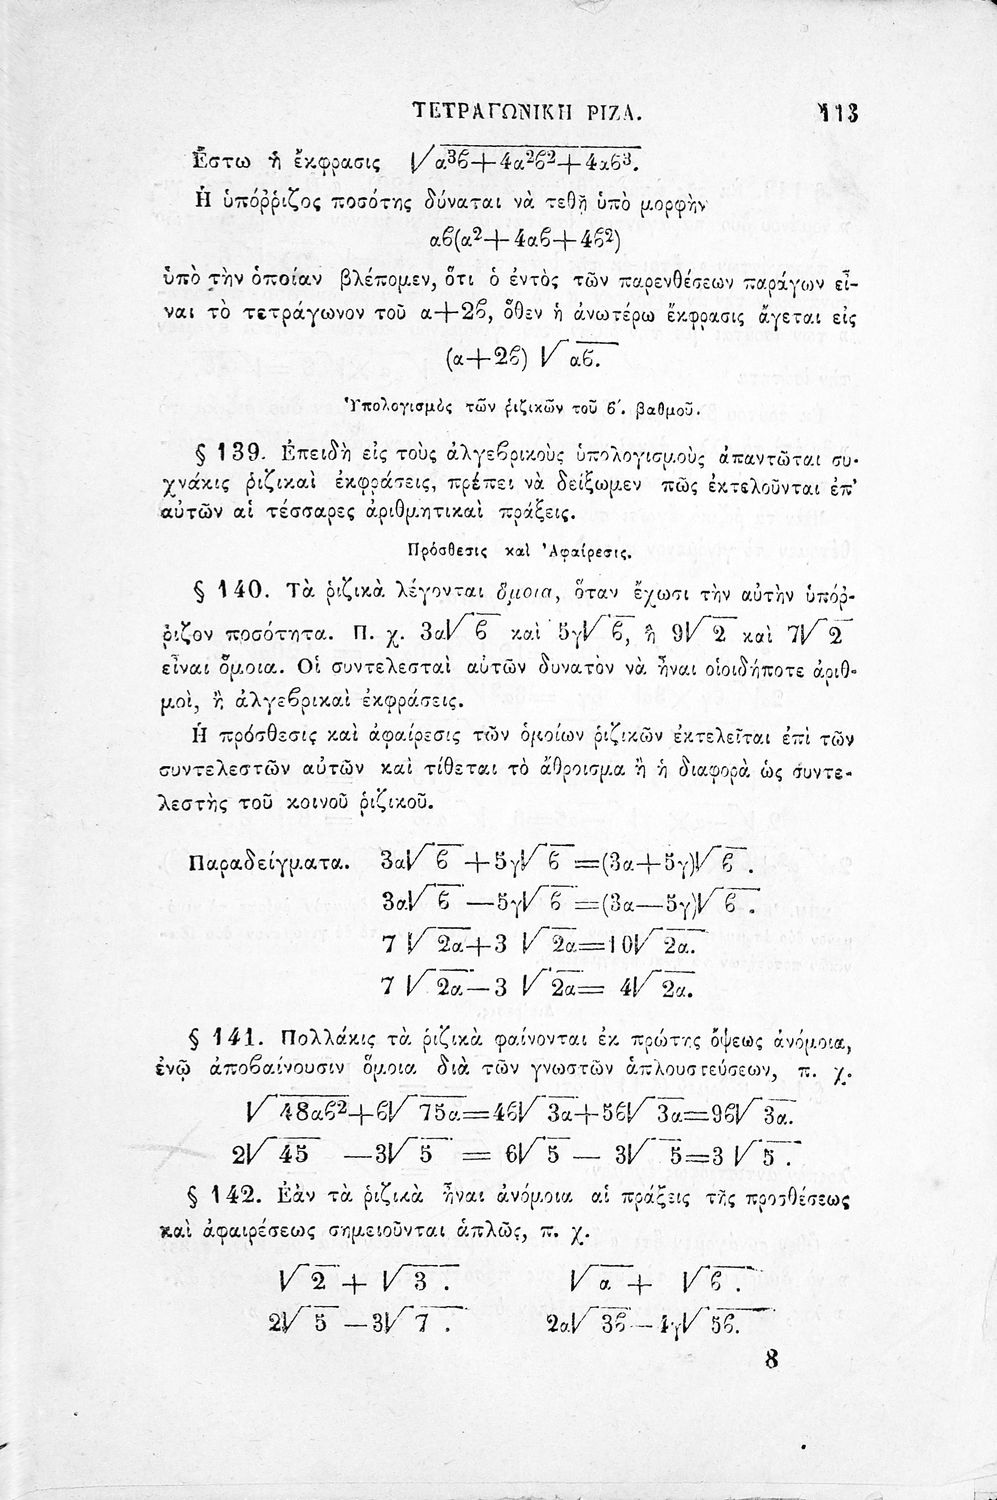 ΤΕΤΡΑΓΩΝΙΚΗ ΡΙΖΑ. 113
Ἔστω ἡ ἔκφρασις √α³β+4α²β²+4αβ³.
Ἡ ὑπόῤῥιζος ποσότης δύναται νὰ τεθῇ ὑπὸ μορφὴν
αβ(α²+4αβ+4β²)
ὑπὸ τὴν ὁποίαν βλέπομεν, ὅτι ὁ ἐντὸς τῶν παρενθέσεων παράγων εἶ-
ναι τὸ τετράγωνον τοῦ α+2β, ὅθεν ἡ ἀνωτέρω ἔκφρασις ἄγεται εἰς
(α+2β) √αβ.
Ὑπολογισμὸς τῶν ῥιζικῶν τοῦ β′. βαθμοῦ.
§ 139. Ἐπειδὴ εἰς τοὺς ἀλγεβρικοὺς ὑπολογισμοὺς ἀπαντῶται συ-
χνάκις ῥιζικαὶ ἐκφράσεις, πρέπει νὰ δείξωμεν πῶς ἐκτελοῦνται ἐπ’
αὐτῶν αἱ τέσσαρες ἀριθμητικαὶ πράξεις.
Πρόσθεσις καὶ Ἀφαίρεσις.
§ 140. Τὰ ῥιζικὰ λέγονται ὅμοια, ὅταν ἔχωσι τὴν αὐτὴν ὑπόῤ-
ῥιζον ποσότητα. Π. χ. 3α√β καὶ 5γ√β, ἢ 9√2 καὶ 7√2
εἶναι ὅμοια. Οἱ συντελεσταὶ αὐτῶν δυνατὸν νὰ ἦναι οἱοιδήποτε ἀριθ-
μοὶ, ἢ ἀλγεβρικαὶ ἐκφράσεις.
Ἡ πρόσθεσις καὶ ἀφαίρεσις τῶν ὁμοίων ῥιζικῶν ἐκτελεῖται ἐπὶ τῶν
συντελεστῶν αὐτῶν καὶ τίθεται τὸ ἄθροισμα ἢ ἡ διαφορὰ ὡς συντε-
λεστὴς τοῦ κοινοῦ ῥιζικοῦ.
Παραδείγματα. 3α√β +5γ√β =(3α+5γ)√β .
3α√β —5γ√β =(3α—5γ)√β .
7 √2α+3 √2α=10√2α.
7 √2α—3 √2α= 4√2α.
§ 141. Πολλάκις τὰ ῥιζικὰ φαίνονται ἐκ πρώτης ὄψεως ἀνόμοια,
ἐνῷ ἀποβαίνουσιν ὅμοια διὰ τῶν γνωστῶν ἁπλουστεύσεων, π. χ.
√48αβ²+β√75α=4β√3α+5β√3α=9β√3α.
2√45 —3√5 = 6√5 — 3√5=3 √5 .
§ 142. Ἐὰν τὰ ῥιζικὰ ἦναι ἀνόμοια αἱ πράξεις τῆς προσθέσεως
καὶ ἀφαιρέσεως σημειοῦνται ἁπλῶς, π. χ.
√2 + √3 . √α + √β .
2√5 —3√7 . 2α√3β — 4γ√5β.
8